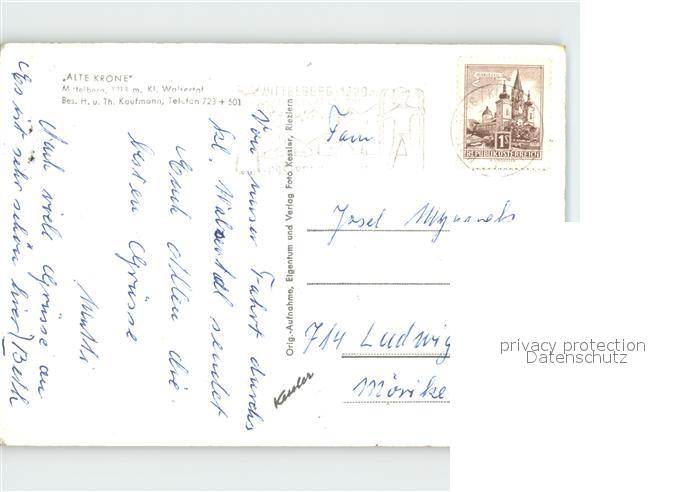 „ALTE KRONE"
Mittelberg, 1218 m, Kl. Walsertal
Bes. H. u. Th. Kaufmann, Telefon 723 + 501
Von unser Fahrt durchs
kl. Walsertal sendet
Euch Allen die
besten Grüsse
Mutti
Auch viele Grüsse an
(Es ist sehr schön hier)
Orig.-Aufnahme, Eigentum und Verlag Foto Kessler, Riezlern
Kessler
MITTELBERG 1220
1S
REPUBLIK ÖSTERREICH
Fam
Josef
714 Ludwig
Mörike
privacy protection
Datenschutz